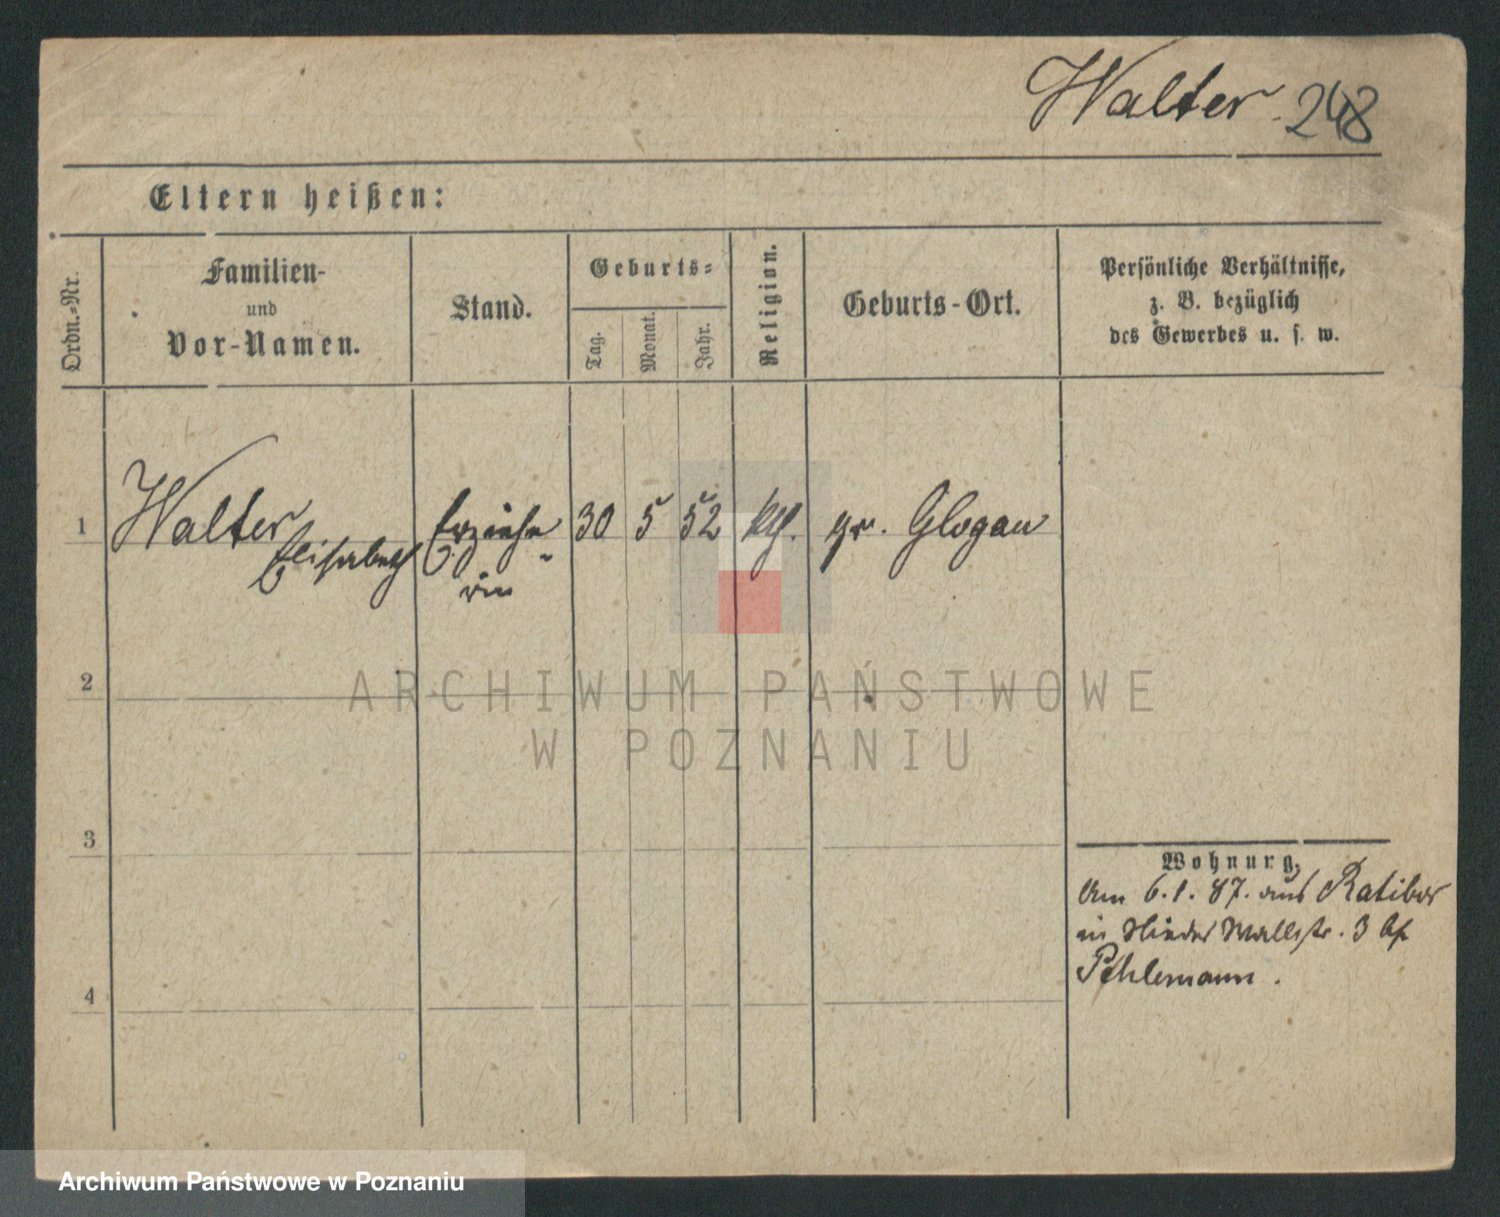 Walter. 248
Eltern heißen:
Ordn.-Nr.
Familien-
und
Vor-Namen.
Stand.
Geburts-
Tag.
Monat.
Jahr.
Religion.
Geburts-Ort.
Persönliche Verhältnisse,
z. B. bezüglich
des Gewerbes u. s. w.
1 Walter Erziehe- 30 5 52 kth. gr. Glogau
Elisabeth rin
2
3
4
Wohnung.
Am 6.1.87. aus Ratibor
in Wallstr. 3 bei
Pehlemann.
ARCHIWUM PAŃSTWOWE
W POZNANIU
Archiwum Państwowe w Poznaniu